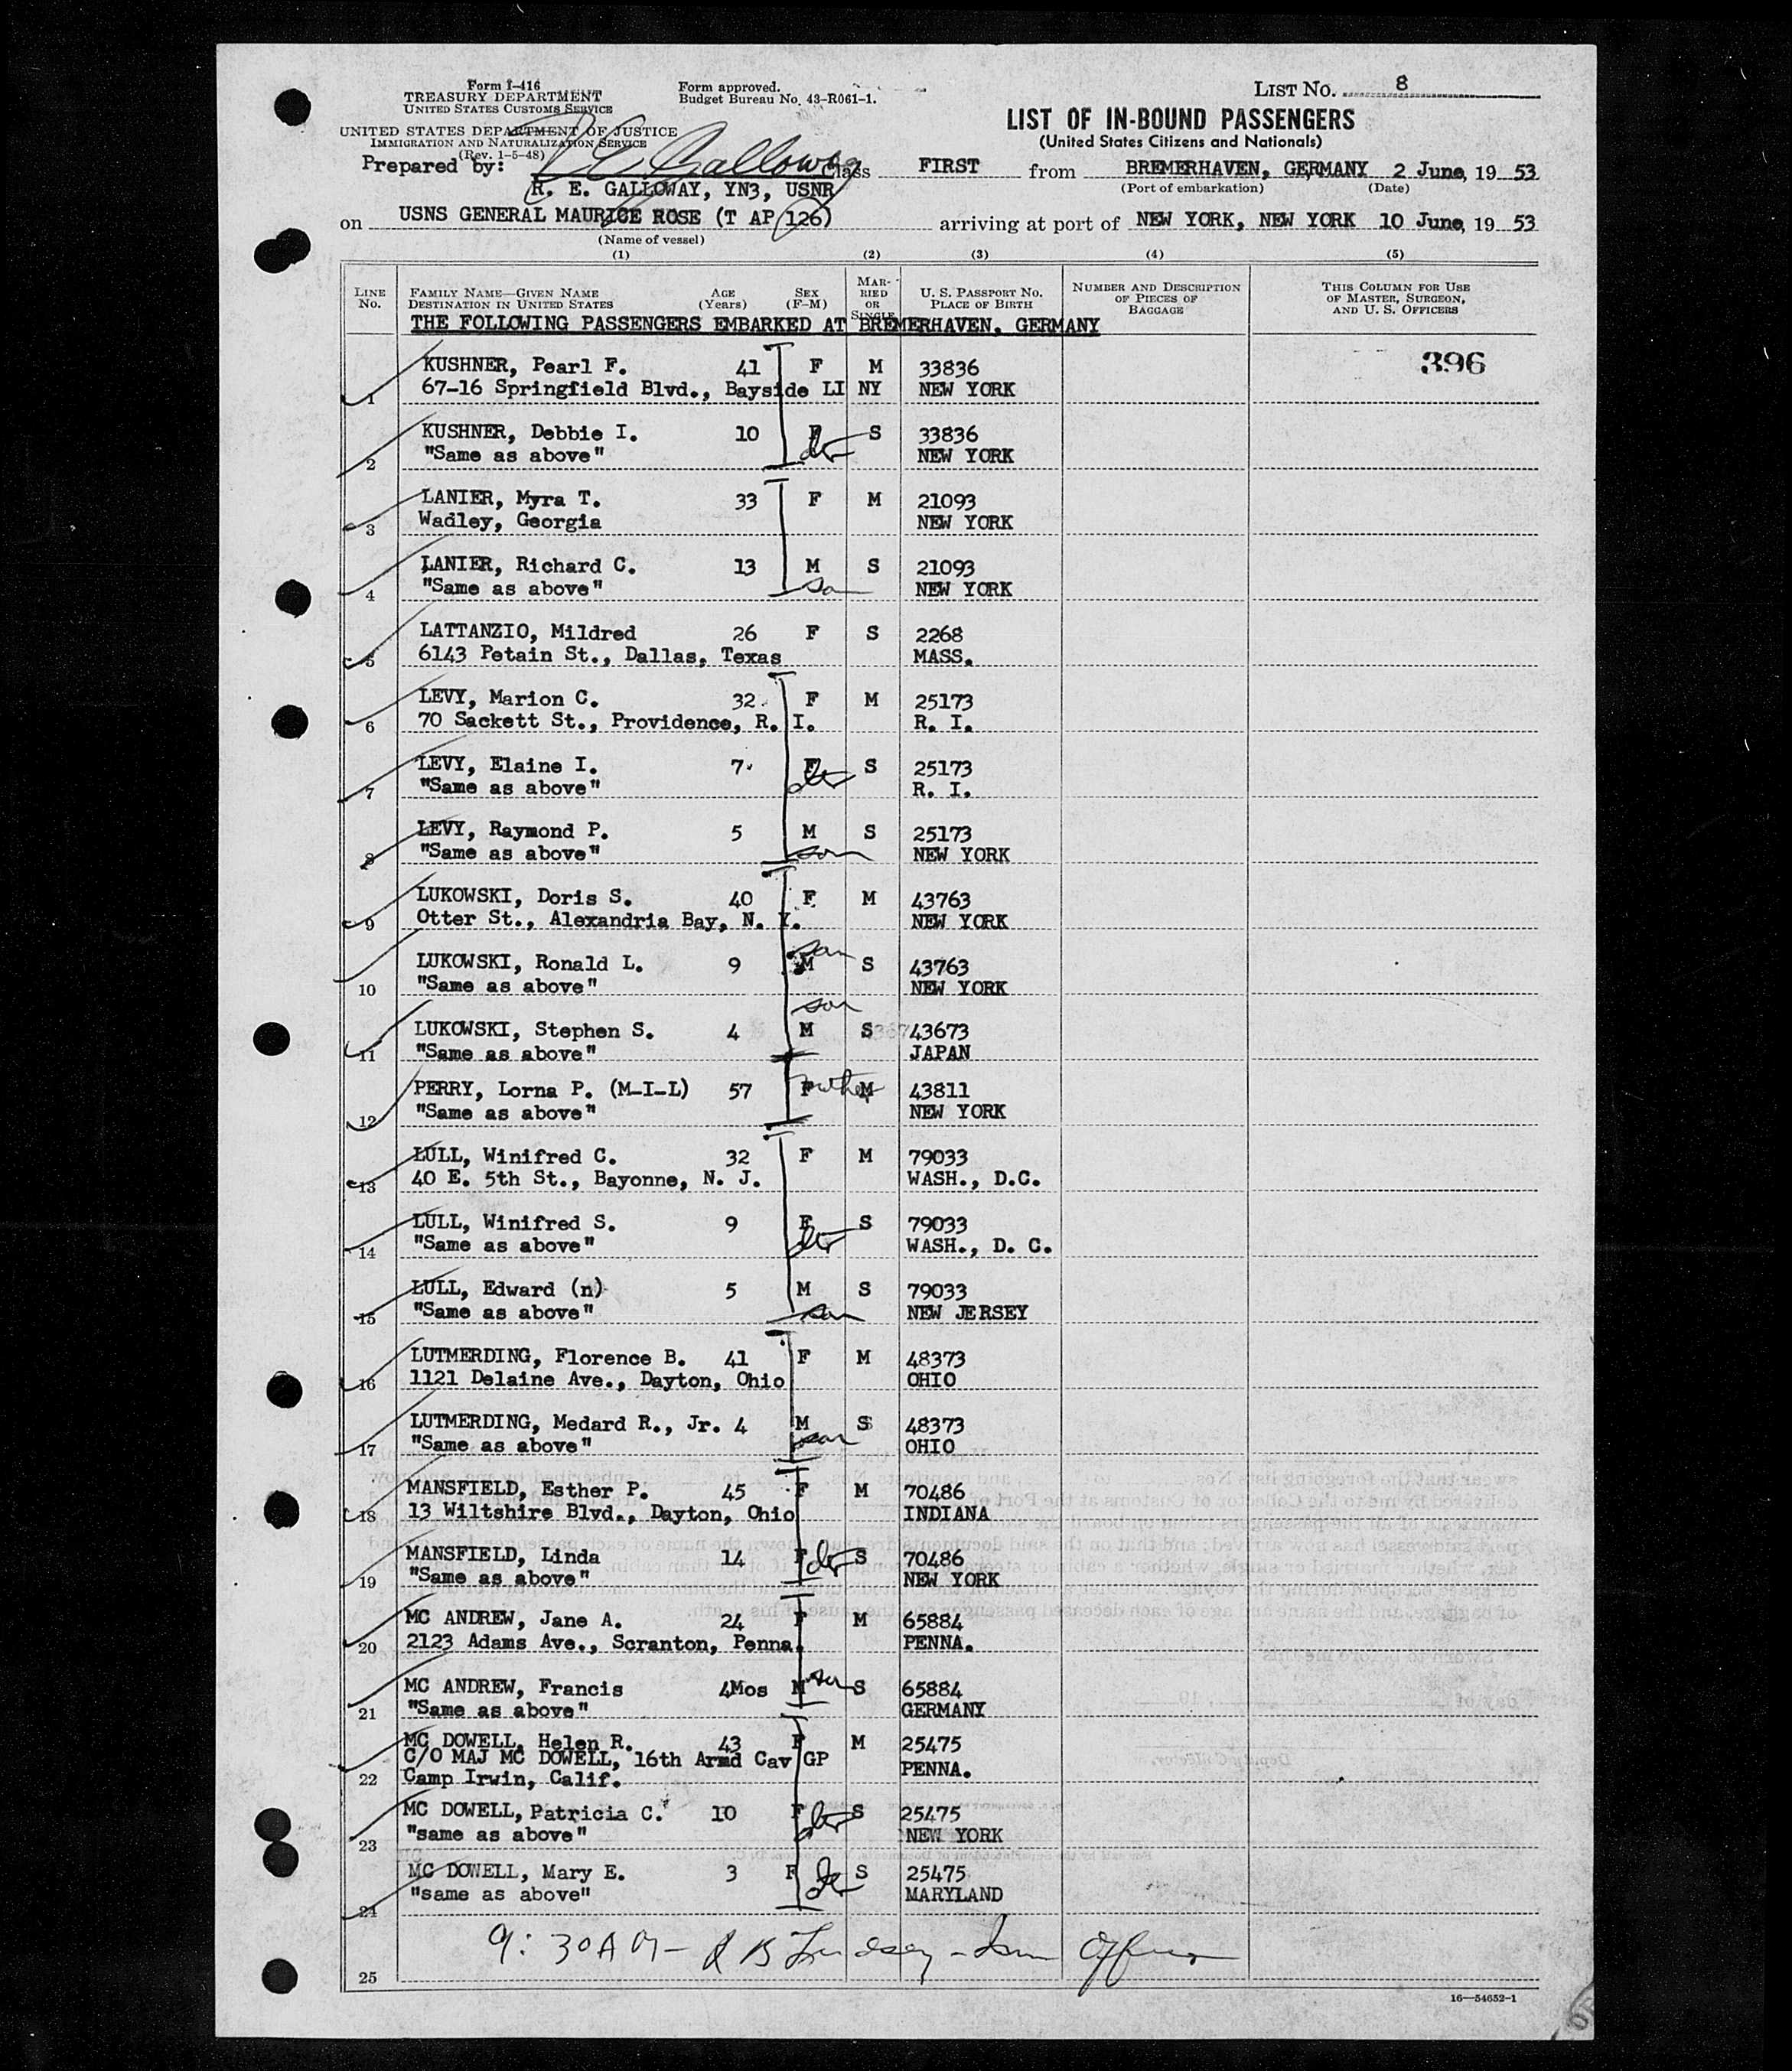 Form I-416
TREASURY DEPARTMENT
UNITED STATES CUSTOMS SERVICE
UNITED STATES DEPARTMENT OF JUSTICE
IMMIGRATION AND NATURALIZATION SERVICE
(Rev. 1-5-48)
Form approved.
Budget Bureau No. 43-R061-1.
LIST NO. 8
LIST OF IN-BOUND PASSENGERS
(United States Citizens and Nationals)
Prepared by: R E Galloway
R. E. GALLOWAY, YN3, USNR
Class FIRST from BREMERHAVEN, GERMANY 2 June, 19 53
(Port of embarkation) (Date)
on USNS GENERAL MAURICE ROSE (T AP 126) arriving at port of NEW YORK, NEW YORK 10 June, 19 53
(Name of vessel)
(1) (2) (3) (4) (5)
LINE NO. FAMILY NAME—GIVEN NAME DESTINATION IN UNITED STATES AGE (Years) SEX (F-M) MARRIED OR SINGLE U. S. PASSPORT NO. PLACE OF BIRTH NUMBER AND DESCRIPTION OF PIECES OF BAGGAGE THIS COLUMN FOR USE OF MASTER, SURGEON, AND U. S. OFFICERS
THE FOLLOWING PASSENGERS EMBARKED AT BREMERHAVEN, GERMANY
KUSHNER, Pearl F. 41 F M 33836 396
1 67-16 Springfield Blvd., Bayside LI NY NEW YORK
KUSHNER, Debbie I. 10 F S 33836
2 "Same as above" dtr NEW YORK
LANIER, Myra T. 33 F M 21093
3 Wadley, Georgia NEW YORK
LANIER, Richard C. 13 M S 21093
4 "Same as above" son NEW YORK
LATTANZIO, Mildred 26 F S 2268
5 6143 Petain St., Dallas, Texas MASS.
LEVY, Marion C. 32 F M 25173
6 70 Sackett St., Providence, R. I. R. I.
LEVY, Elaine I. 7 F S 25173
7 "Same as above" dtr R. I.
LEVY, Raymond P. 5 M S 25173
8 "Same as above" son NEW YORK
LUKOWSKI, Doris S. 40 F M 43763
9 Otter St., Alexandria Bay, N. Y. NEW YORK
son
LUKOWSKI, Ronald L. 9 M S 43763
10 "Same as above" NEW YORK
son
LUKOWSKI, Stephen S. 4 M S 43673
11 "Same as above" JAPAN
PERRY, Lorna P. (M-I-L) 57 F mother M 43811
12 "Same as above" NEW YORK
LULL, Winifred C. 32 F M 79033
13 40 E. 5th St., Bayonne, N. J. WASH., D.C.
LULL, Winifred S. 9 F S 79033
14 "Same as above" dtr WASH., D. C.
LULL, Edward (n) 5 M S 79033
15 "Same as above" son NEW JERSEY
LUTMERDING, Florence B. 41 F M 48373
16 1121 Delaine Ave., Dayton, Ohio OHIO
LUTMERDING, Medard R., Jr. 4 M S 48373
17 "Same as above" son OHIO
MANSFIELD, Esther P. 45 F M 70486
18 13 Wiltshire Blvd., Dayton, Ohio INDIANA
MANSFIELD, Linda 14 F dtr S 70486
19 "Same as above" NEW YORK
MC ANDREW, Jane A. 24 F M 65884
20 2123 Adams Ave., Scranton, Penna. PENNA.
MC ANDREW, Francis 4Mos M son S 65884
21 "Same as above" GERMANY
MC DOWELL, Helen R. 43 F M 25475
C/O MAJ MC DOWELL, 16th Armd Cav GP PENNA.
22 Camp Irwin, Calif.
MC DOWELL, Patricia C. 10 F dtr S 25475
23 "same as above" NEW YORK
MC DOWELL, Mary E. 3 F dtr S 25475
24 "same as above" MARYLAND
9:30 AM - R B Lindsey - Imm Officer
25
16—54652-1